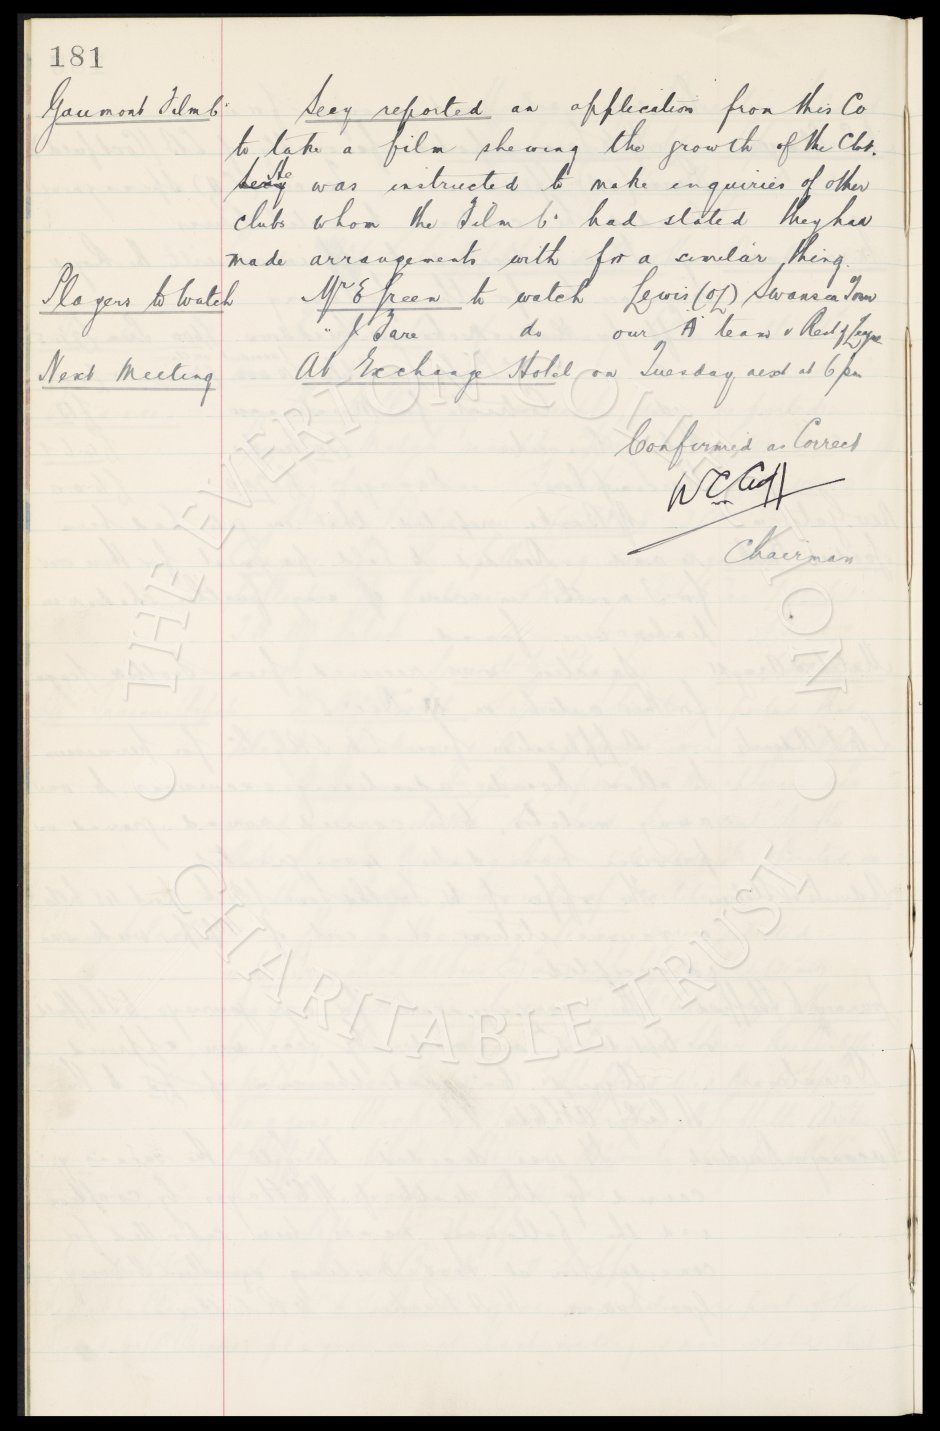 181
Gaumont Film Co Secy reported an application from this Co
to take a film shewing the growth of the Club.
He was instructed to make enquiries of other
clubs whom the Film Co had stated they had
made arrangements with for a similar thing.
Players to Watch Mr E Green to watch Lewis (OL) Swansea Town
" J Fare do our A team v Rest of League
Next Meeting At Exchange Hotel on Tuesday next at 6 pm
Confirmed as Correct
W C Cuff
Chairman
THE EVERTON COLLECTION
CHARITABLE TRUST